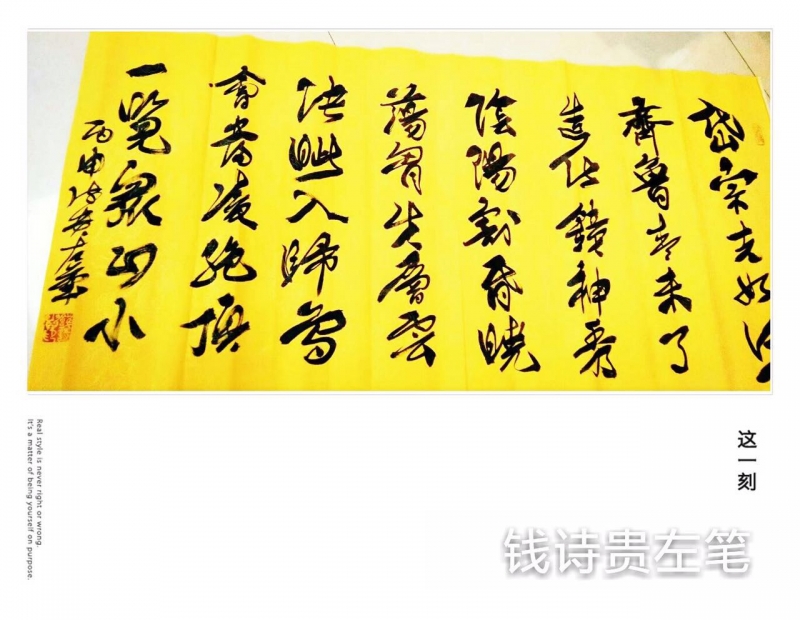 岱宗夫如何
齊魯青未了
造化鍾神秀
陰陽割昏曉
蕩胷生層雲
決眦入歸鳥
會當凌絶頂
一覽眾山小
丙申詩贵左筆
这一刻
钱诗贵左笔
Real style is never right or wrong.
It's a matter of being yourself on purpose.